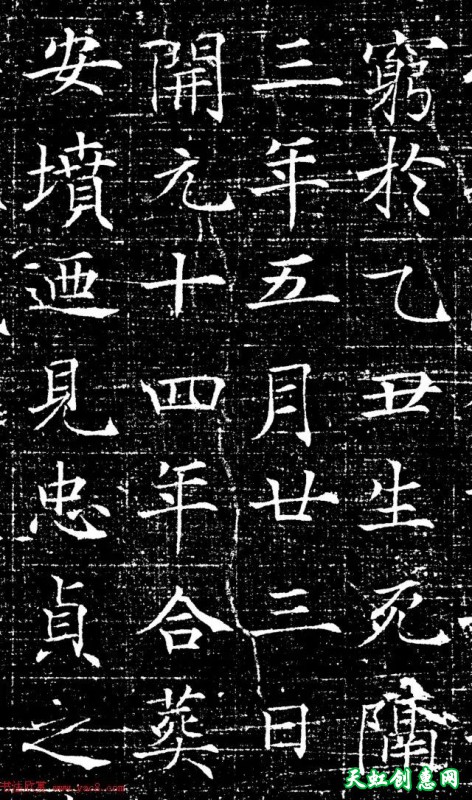 窮於乙丑生死隔
三年五月廿三日
開元十四年合葬
安墳迺見忠貞之
天虹创意网
书法欣赏 www.yac8.com